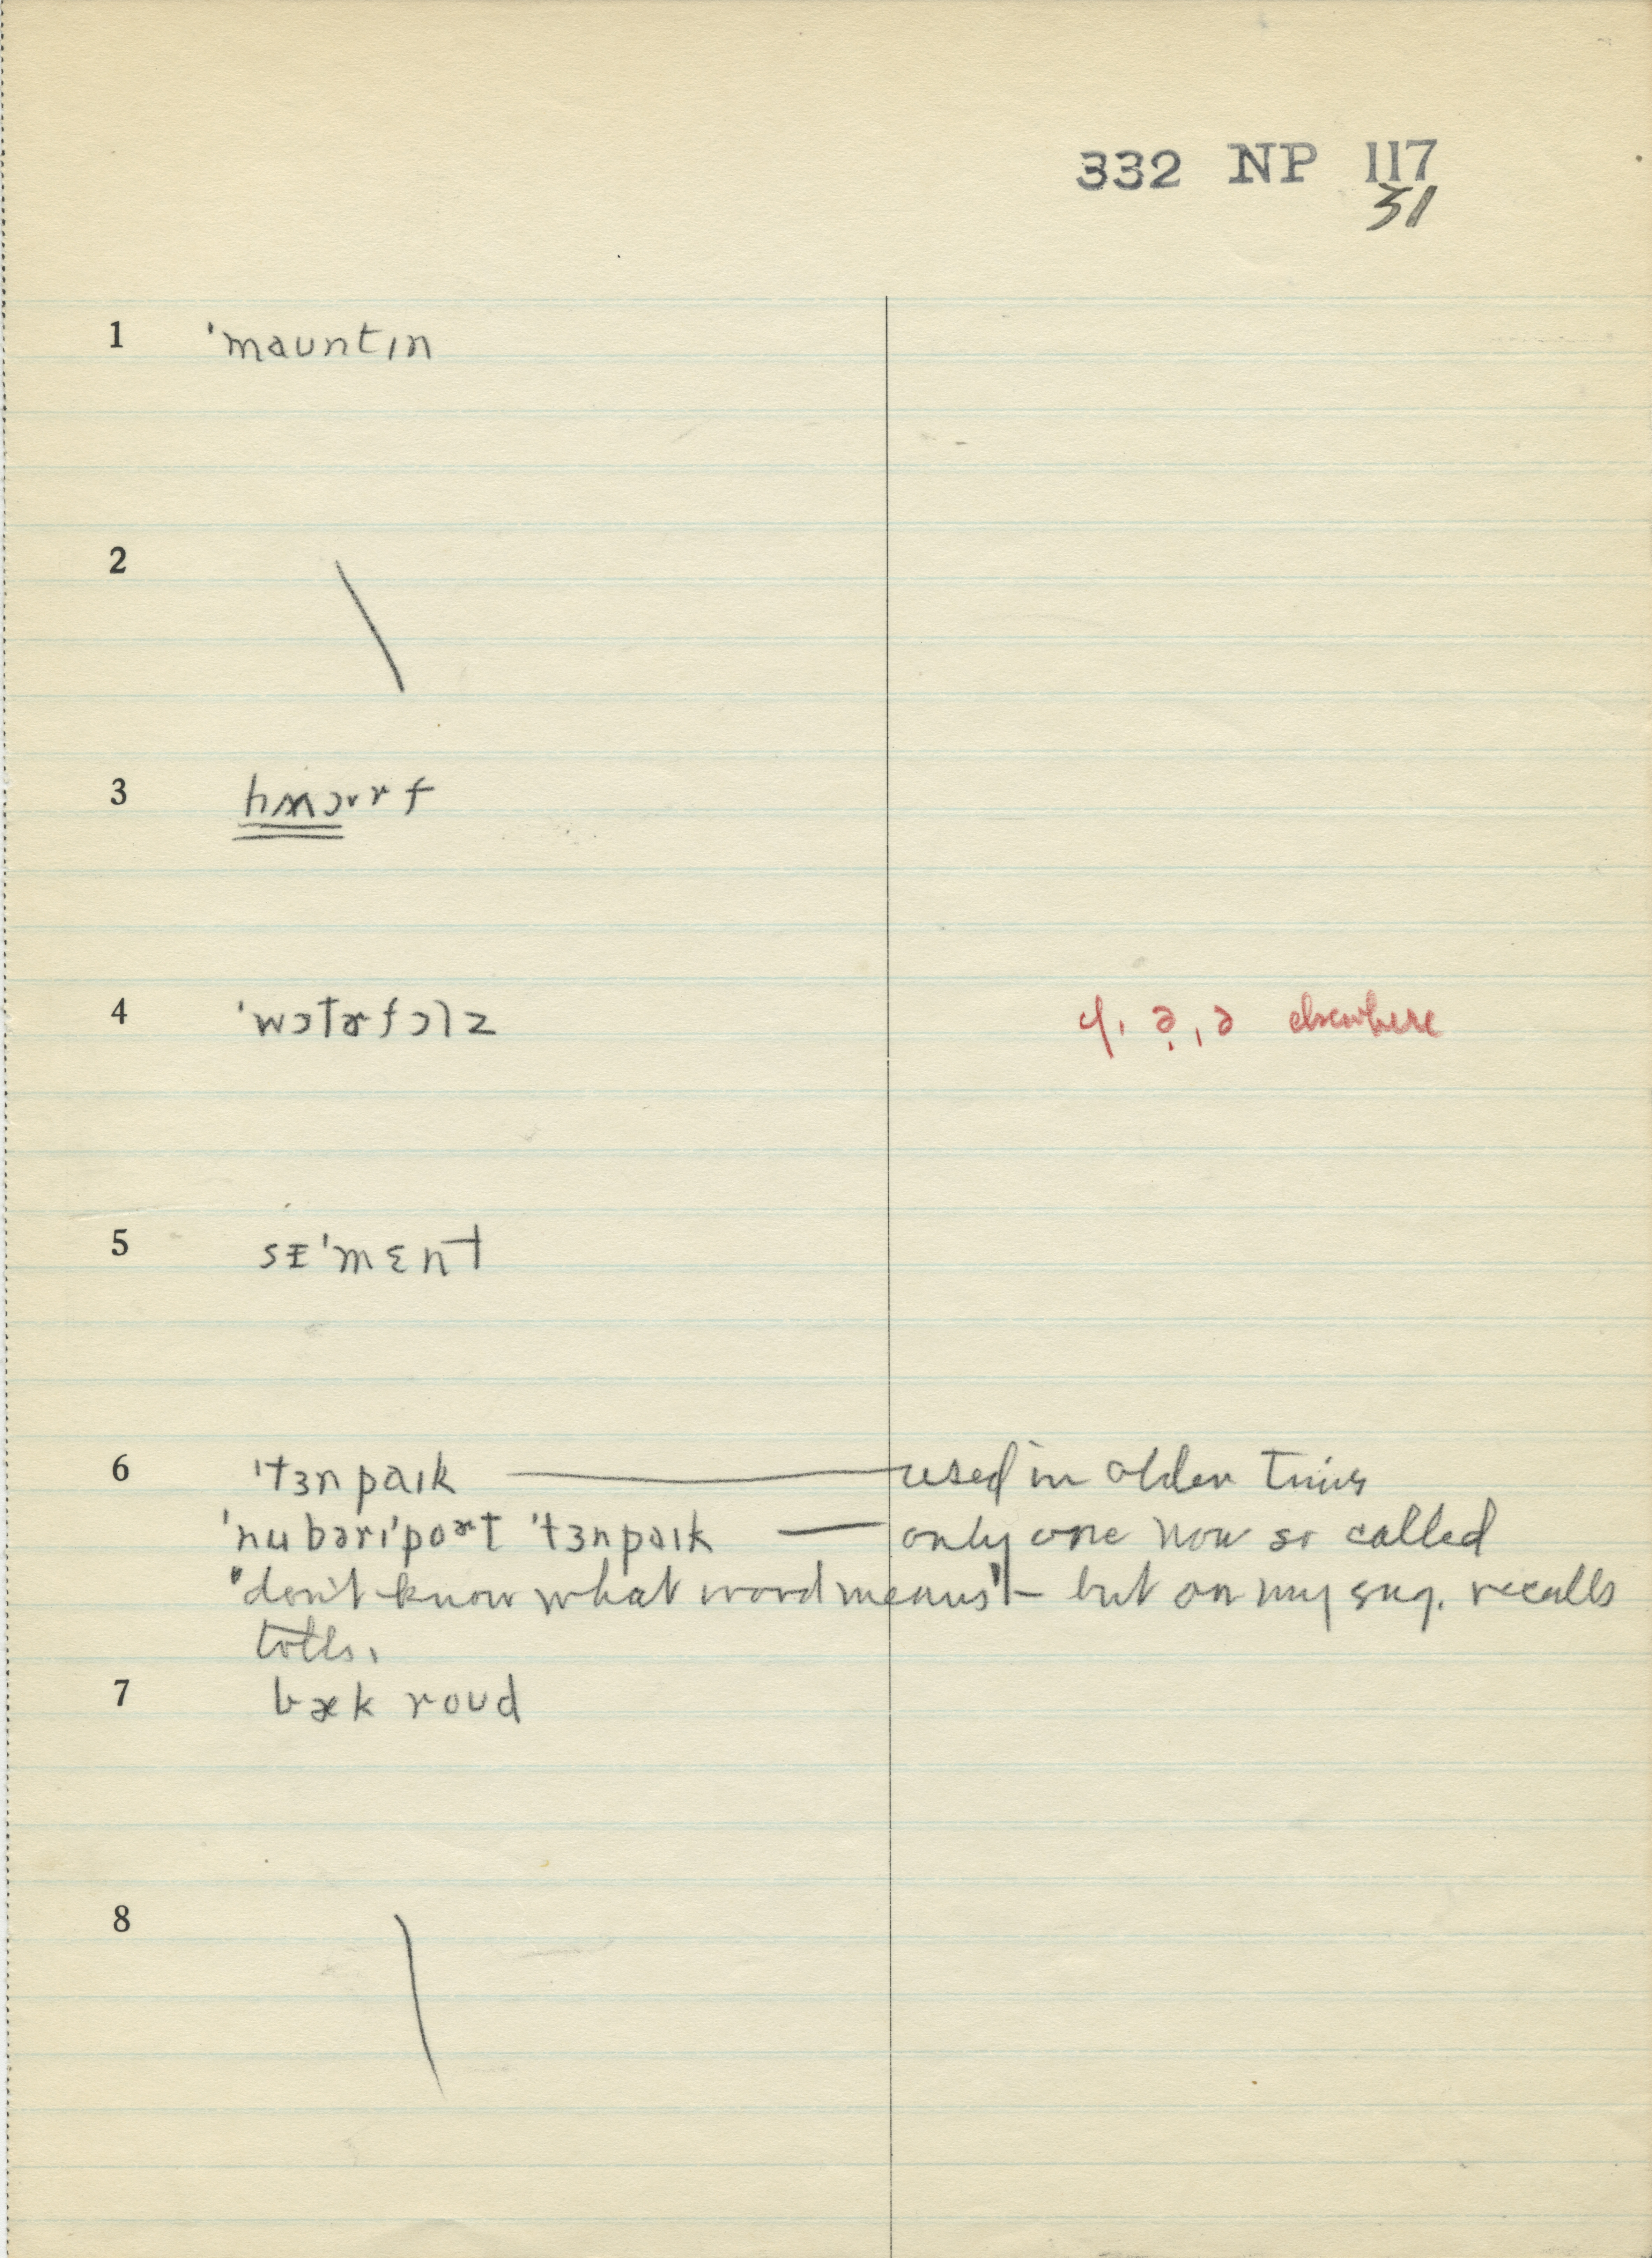 332 NP 117
31
1 ˈmauntɪn
2
3 hwɔrf
4 ˈwɔtɚfɔlz ə̣, ə elsewhere
5 sᵻˈmɛnt
6 ˈtɜnpaɪk — used in olden times
ˈnubərɪˈpoɚt ˈtɜnpaɪk — only one now so called
"don't know what word means" — but on my sug. recalls
tolls.
7 bæk roʊd
8